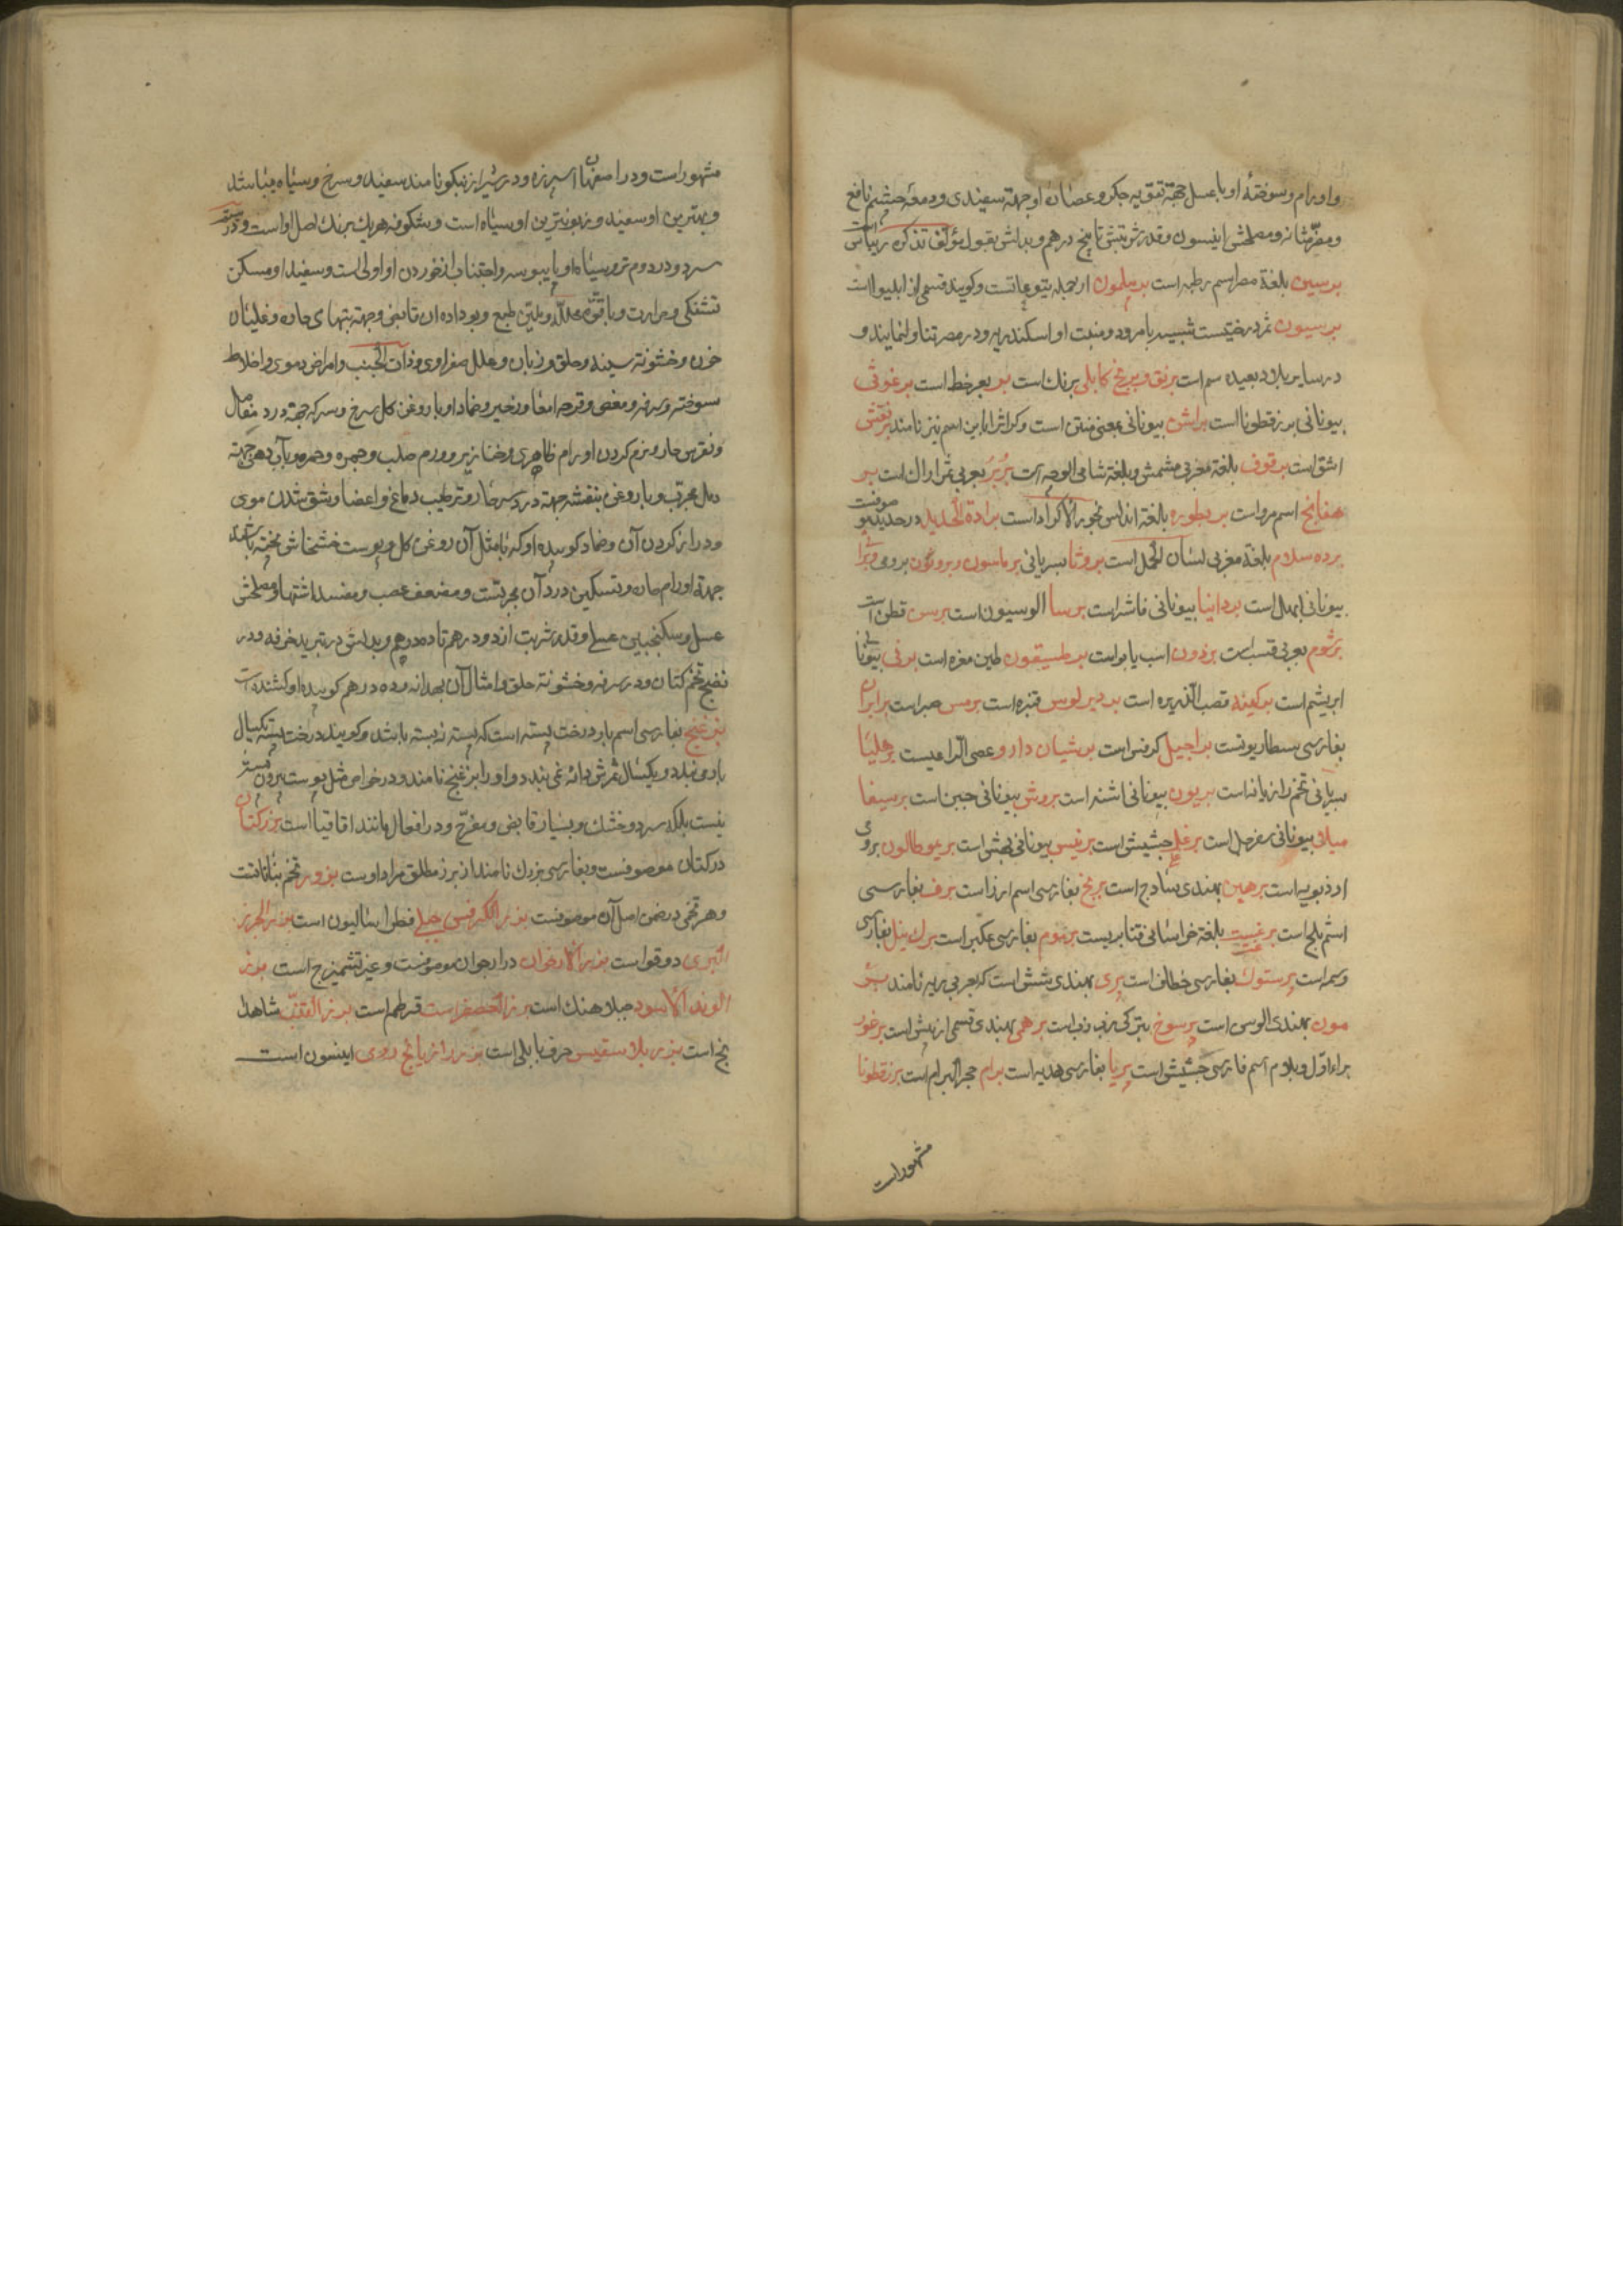 واورام وسوختهٔ او با عسل جهة تقویه جکر و عصارهٔ او جهة سفیدی و دمعهٔ چشم نافع
ومضر مثانه و مصلحش انیسون و قدر شربتش تا پنج درهم و بدلش بقول مؤلف تذکره زیباس است
برسیم بلغة مصر اسم رطبه است برملیون از جمله یتوعاتست وکویند قسمی از ابلیو است
برسیون ثمر درختیست شبیه بامرود و منبت او اسکندریه و در مصر تناول نمایند و
در سایر بلاد بعیده سم است برنق وبرنج کابلی برنك است بر بعر خط است برغوثی
بیونانی بزرقطونا است براش بیونانی بمعنی منتن است وکراث را باین اسم نیز نامند برنقش
اشق است برقوق بلغة مغربی مشمش وبلغة شامی الوجه است بربر بعربی ثمر اراك است بر
هفانج اسم مرو است بربطوره بالغة اندلس نجور الاکراد است برادة الحدید در حدید موصوفست
برده سلام بلغة مغربی لسان الحمل است بروثا بسریانی برماسون و بروکون برومی و برا
بیونانی ابهل است بردانیا بیونانی فاشرا است برسا الوسیون است برس قطن است
برشوم بعربی قسب است برذون اسب یابو است برطسیقون طین مغره است برنی بیونانی
ابریشم است برکینه قصب الذریره است بردیرلوس قنبره است برمس صبر است برابران
بفارسی بسطاریونست براجیل کرفس است برشیان دارو عصی الراعیست برهلیا
بسریانی تخم رازیانه است بریون بیونانی اشنه است بروش بیونانی جبن است برسیغا
میلانی بیونانی سفرجل است برغل جشیش است برنیس بیونانی بهش است بریوطالون برومی
اذذبویه است برهین بهندی ساذج است برنج بفارسی اسم ارز است برف بفارسی
اسم ثلج است برغست بلغة خراسانی قنابریست برموم بفارسی عکبر است برك نیل بفارسی
وسمه است پرستوك بفارسی خطاف است پری بهندی شش است که بعربی ریه نامند بر
مون بهندی الوس است پرسوخ بترکی زبب است برهمی بهندی قسمی از بیش است برخور
براء اول و بلام اسم فارسی جشیش است پریا بفارسی هدیه است برام حجر البرام است بزرقطونا
مشهور است
مشهور است و در اصفهان اسپرزه و در شیراز بنکو نامند سفید و سرخ و سیاه میباشد
وبهترین او سفید و زبونترین او سیاه است و شکوفه هریك برنك اصل او است و در سیم
سرد و در دوم تر و سیاه او با یبوسه و اجتناب از خوردن او اولی است و سفید او مسکن
تشنکی و حرارت و با قوة محلله و ملین طبع و بو داده ان قابض و جهة تبهای حاره و غلیان
خون و خشونة سینه و حلق و زبان و علل صفراوی و ذات الجنب و امراض دموی و اخلاط
سوخته و سرفه و مغص و قرحه امعا و زحیر و ضماد او با روغن کل سرخ و سرکه جهة درد مفاصل
ونقرس حار و نرم کردن اورام ظاهری و خنازیر و ورم صلب و جمره و حمره و با آب دهن جهة
دمل مجرب و با روغن بنفشه جهة درد سر حار و ترطیب دماغ و اعضا و شق شدن موی
ودراز کردن آن و ضماد کوبیده او که با مثل آن روغن کل و پوست خشخاش پخته باشند
جهة اورام حاره و تسکین درد آن مجربست و مضعف عصب و مفسد اشتها و مصلحش
عسل و سکنجبین عسلی و قدر شربت از دو درهم تا ده درهم و بدلش در تبرید خرفه و در
نضج تخم کتان و در سرفه و خشونة حلق و امثال آن بهدانه و ده درهم کوبیده او کشنده است
بزغنج بفارسی اسم بار درخت پسته است که پسته نه بسته باشد و کویند درخت پسته یکسال
بار می بندد و یکسال ثمرش دانه نمی بندد و او را بزغنج نامند و در خواص مثل پوست بیرون پسته
نیست بلکه سرد و خشك و بسیار قابض و مفرح و در افعال مانند اقاقیا است بزرکتان
در کتان موصوفست و بفارسی بزرك نامند از بزر مطلق مراد اوست بزور تخم نباتاتست
وهر تخمی در ضمن اصل آن موصوفست بزر الکرفس جبلی فطراسالیون است بزر الجزر
البری دوقو است بزر الارخوان در ارجوان موصوفست و غیر تشمیزج است بزر
الوند الاسود جبلاهنك است بزر العصفر است قرطم است بزر القنب شاهدانج است بزر بلاسقیس حرف بابلی است بزر رازیانج رومی انیسون است